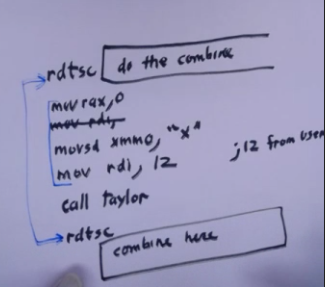 rdtsc do the combine
mov rax,0
mov rdi,
movsd xmm0, "x"
mov rdi, 12 ;12 from user
call taylor
rdtsc
combine here